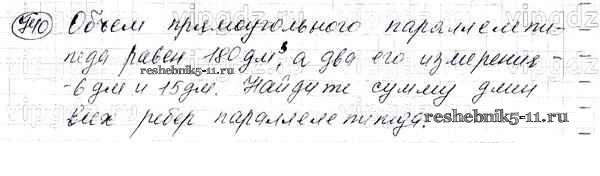 940 Объем прямоугольного параллелепи-
педа равен 180 дм³, а два его измерения -
- 6 дм и 15 дм. Найдите сумму длин
всех ребер параллелепипеда.
reshebnik5-11.ru
reshebnik5-11.ru